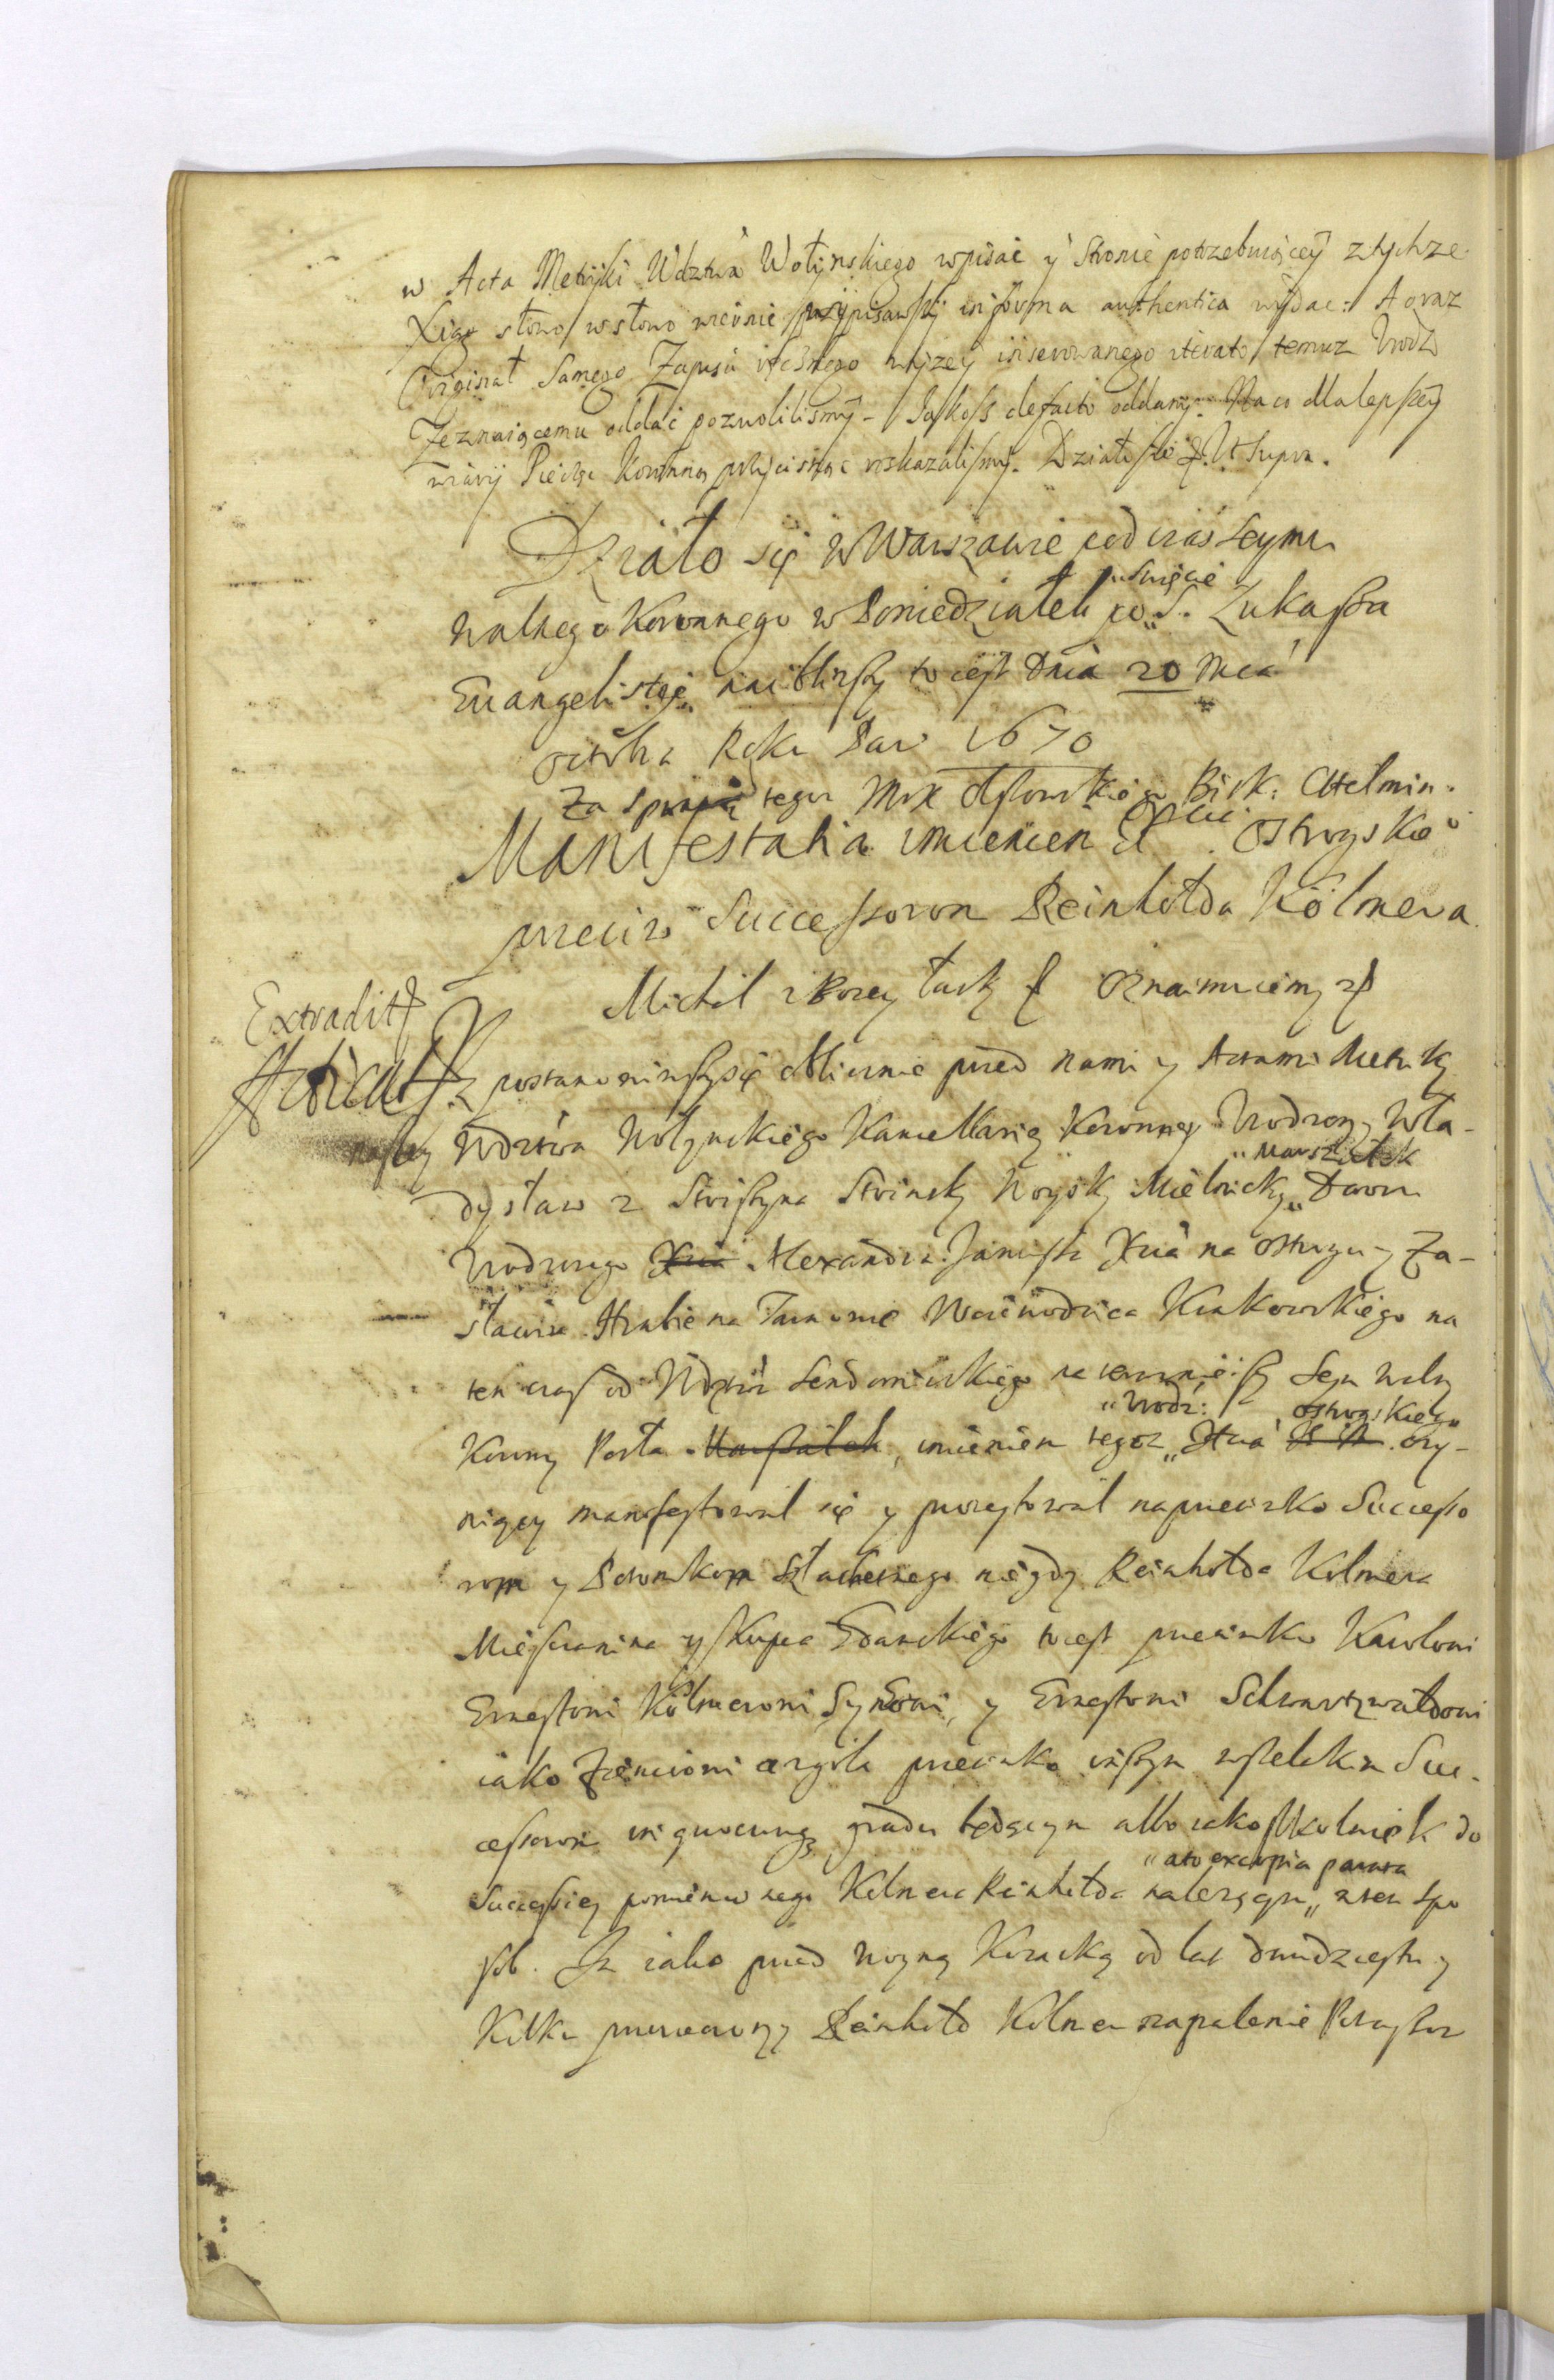 w Acta Metryki Wdztwa Wołynskiego wpisać y stronie potrzebuiącey ztychze
Xiąg słowo w słowo wiernie przypisawszy in forma authentica wydać: A oraz
Originał samego Zapisu wyzey inserowanego iterato temuz Urodz
Zeznaiącemu oddać pozwolilismy – Jakosz de facto oddany. Na co dla lepszey
wiary Pieczęć Koronną przycisnąć rozkazalismy. Działo się Ut supra.
Działo się w Warszawie pod czas Seymu
walnego Koronnego w Poniedziałek po „święcie S. Łukasza
Euangelistÿ nai bliższy to iest Dnia 20 Mca
octobra Roku Pan 1670
Za sprawą tegoz Bisk: Chełmin.
Manifestatia imieniem Xcia Ostrogskie°
przeciw Successorom Reinholda Kölmera
Michał z Bozey łasky Oznaimuiemy
Extradit
Iz postanowiwszysię oblicznie przed nami y Actami Metryky
naszey Wdztwa Wołynskiego Kancellariey Koronney Urodzony Wła-
dysław z Strinsky Woysky Mielnicky „Marszałek Dworu
Urodzonego Xcia Alexandra Janusza Xcia na Ostrogu y Za-
sławiu Hrabie na Tarnowie Woiewodzica Krakowskiego na
ten czas od Wdztwa Sendomirskiego na teraznieiszy Seym walny
Koronny Posła Marszałek, imieniem tegoz „Urodz: Xcia Ostrogskieg° czy-
niący manifestował się y protestował naprzeciwko Successo
rom y Potomkom Szlachetnego niegdy Reinholda Kolmera
Mieszczanina y Kupca Gdanskiego to iest przeciwko Karolowi
Ernestowi Kölmerowi Synowi, y Ernestowi Schwartzwaldowi
iako Zięciowi a zgoła przeciwko inszym wszelakim Suc-
cessorom in quocunq gradu będącym albo iako szkolwiek do
Successiey pomienionego Kelmera Reinholda nalezącym „ w ten spo
sob. Iz iako przed woyną Kozacką od lat dwudziestu y
Kilku Reinhold Kolmer na palenie Potaszow